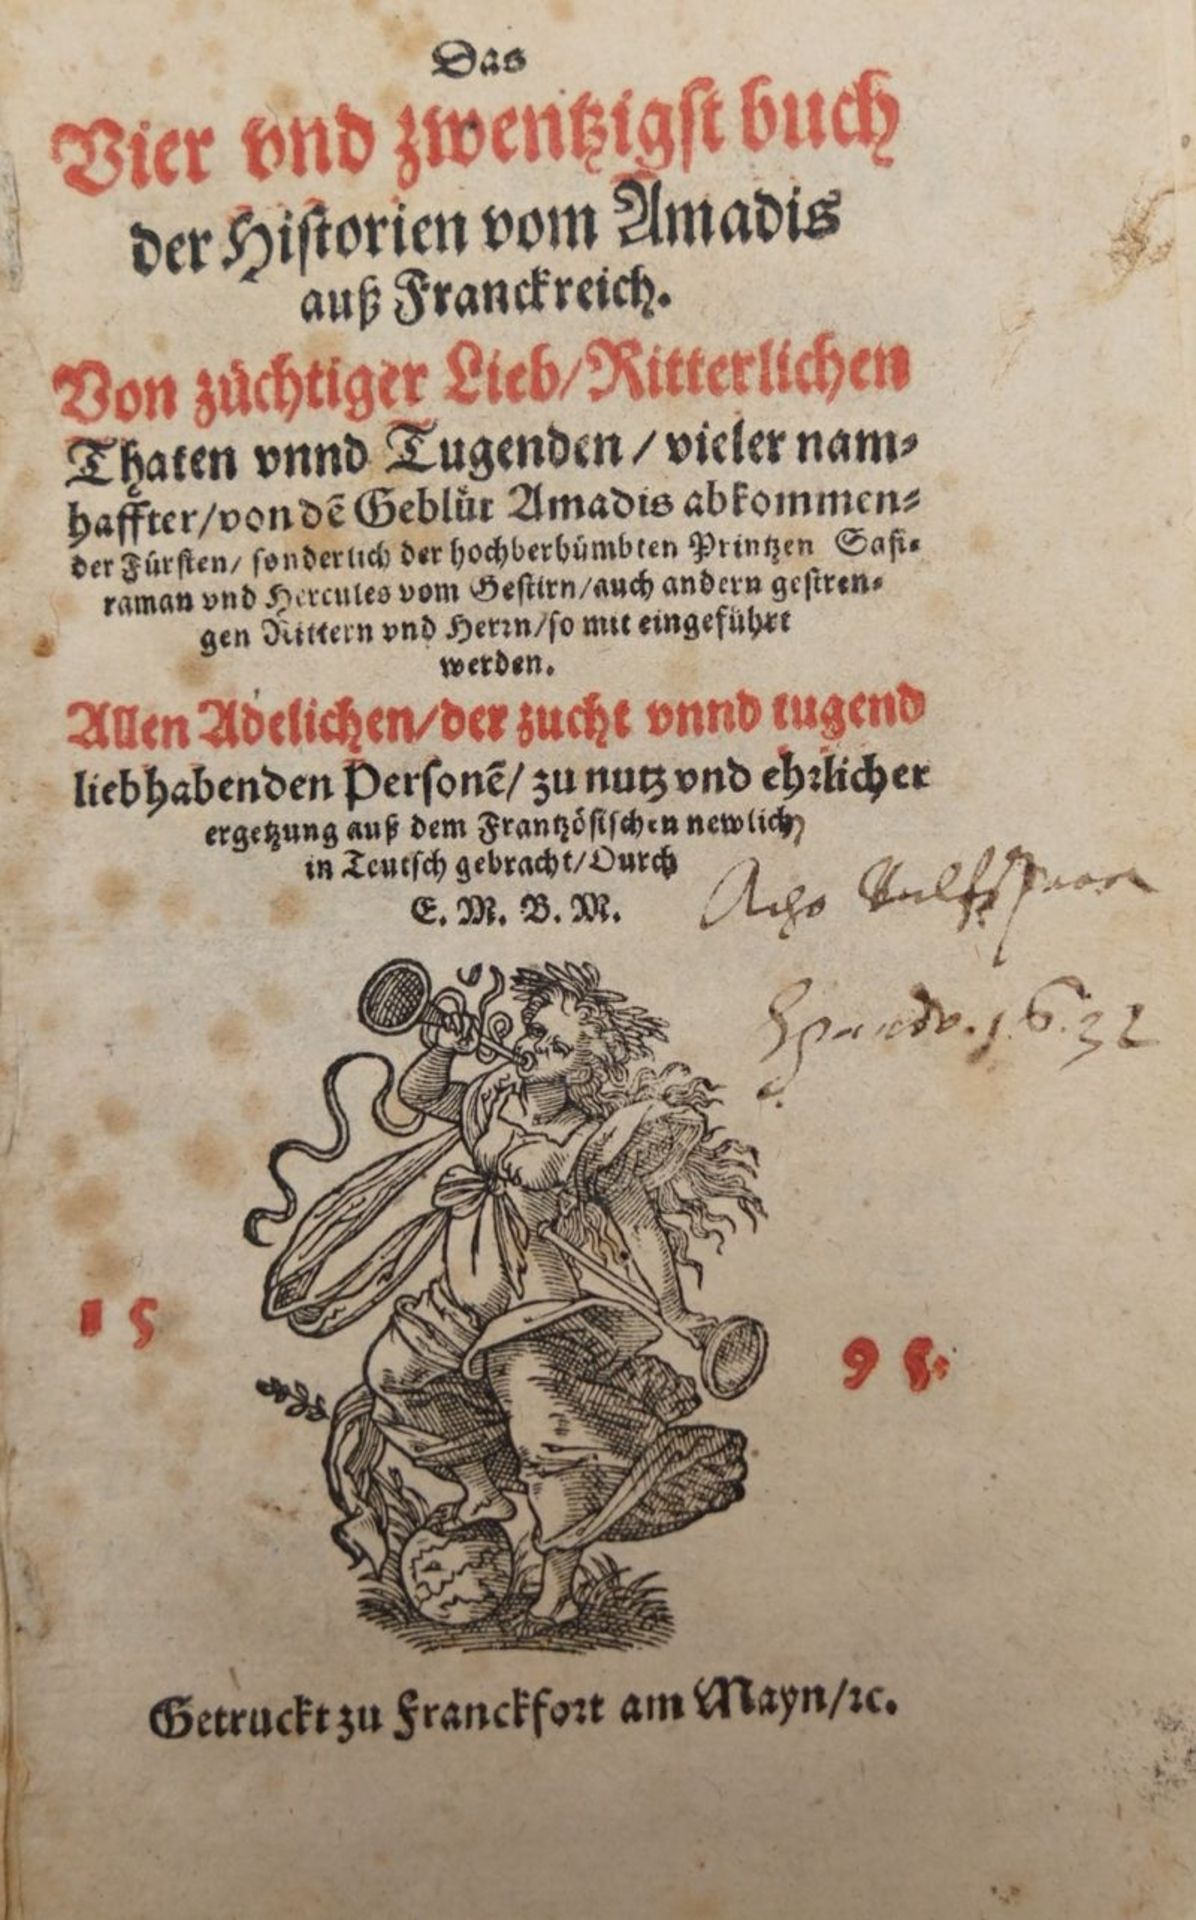 Das
Vier vnd zwentzigst buch
der Historien vom Amadis
auß Franckreich.
Von züchtiger Lieb/Ritterlichen
Thaten vnnd Tugenden/vieler nam⸗
haffter/von dẽ Geblüt Amadis abkommen⸗
der Fürsten/ sonderlich der hochberhümbten Printzen Safi⸗
raman vnd Hercules vom Gestirn/auch andern gestren⸗
gen Rittern vnd Herrn/so mit eingeführt
werden.
Allen Adelichen/der zucht vnnd tugend
liebhabenden Personẽ/ zu nutz vnd ehrlicher
ergetzung auß dem Frantzösischen newlich
in Teutsch gebracht/Durch
E. M. V. M.
1632
15
95.
Getruckt zu Franckfort am Mayn/ꝛc.